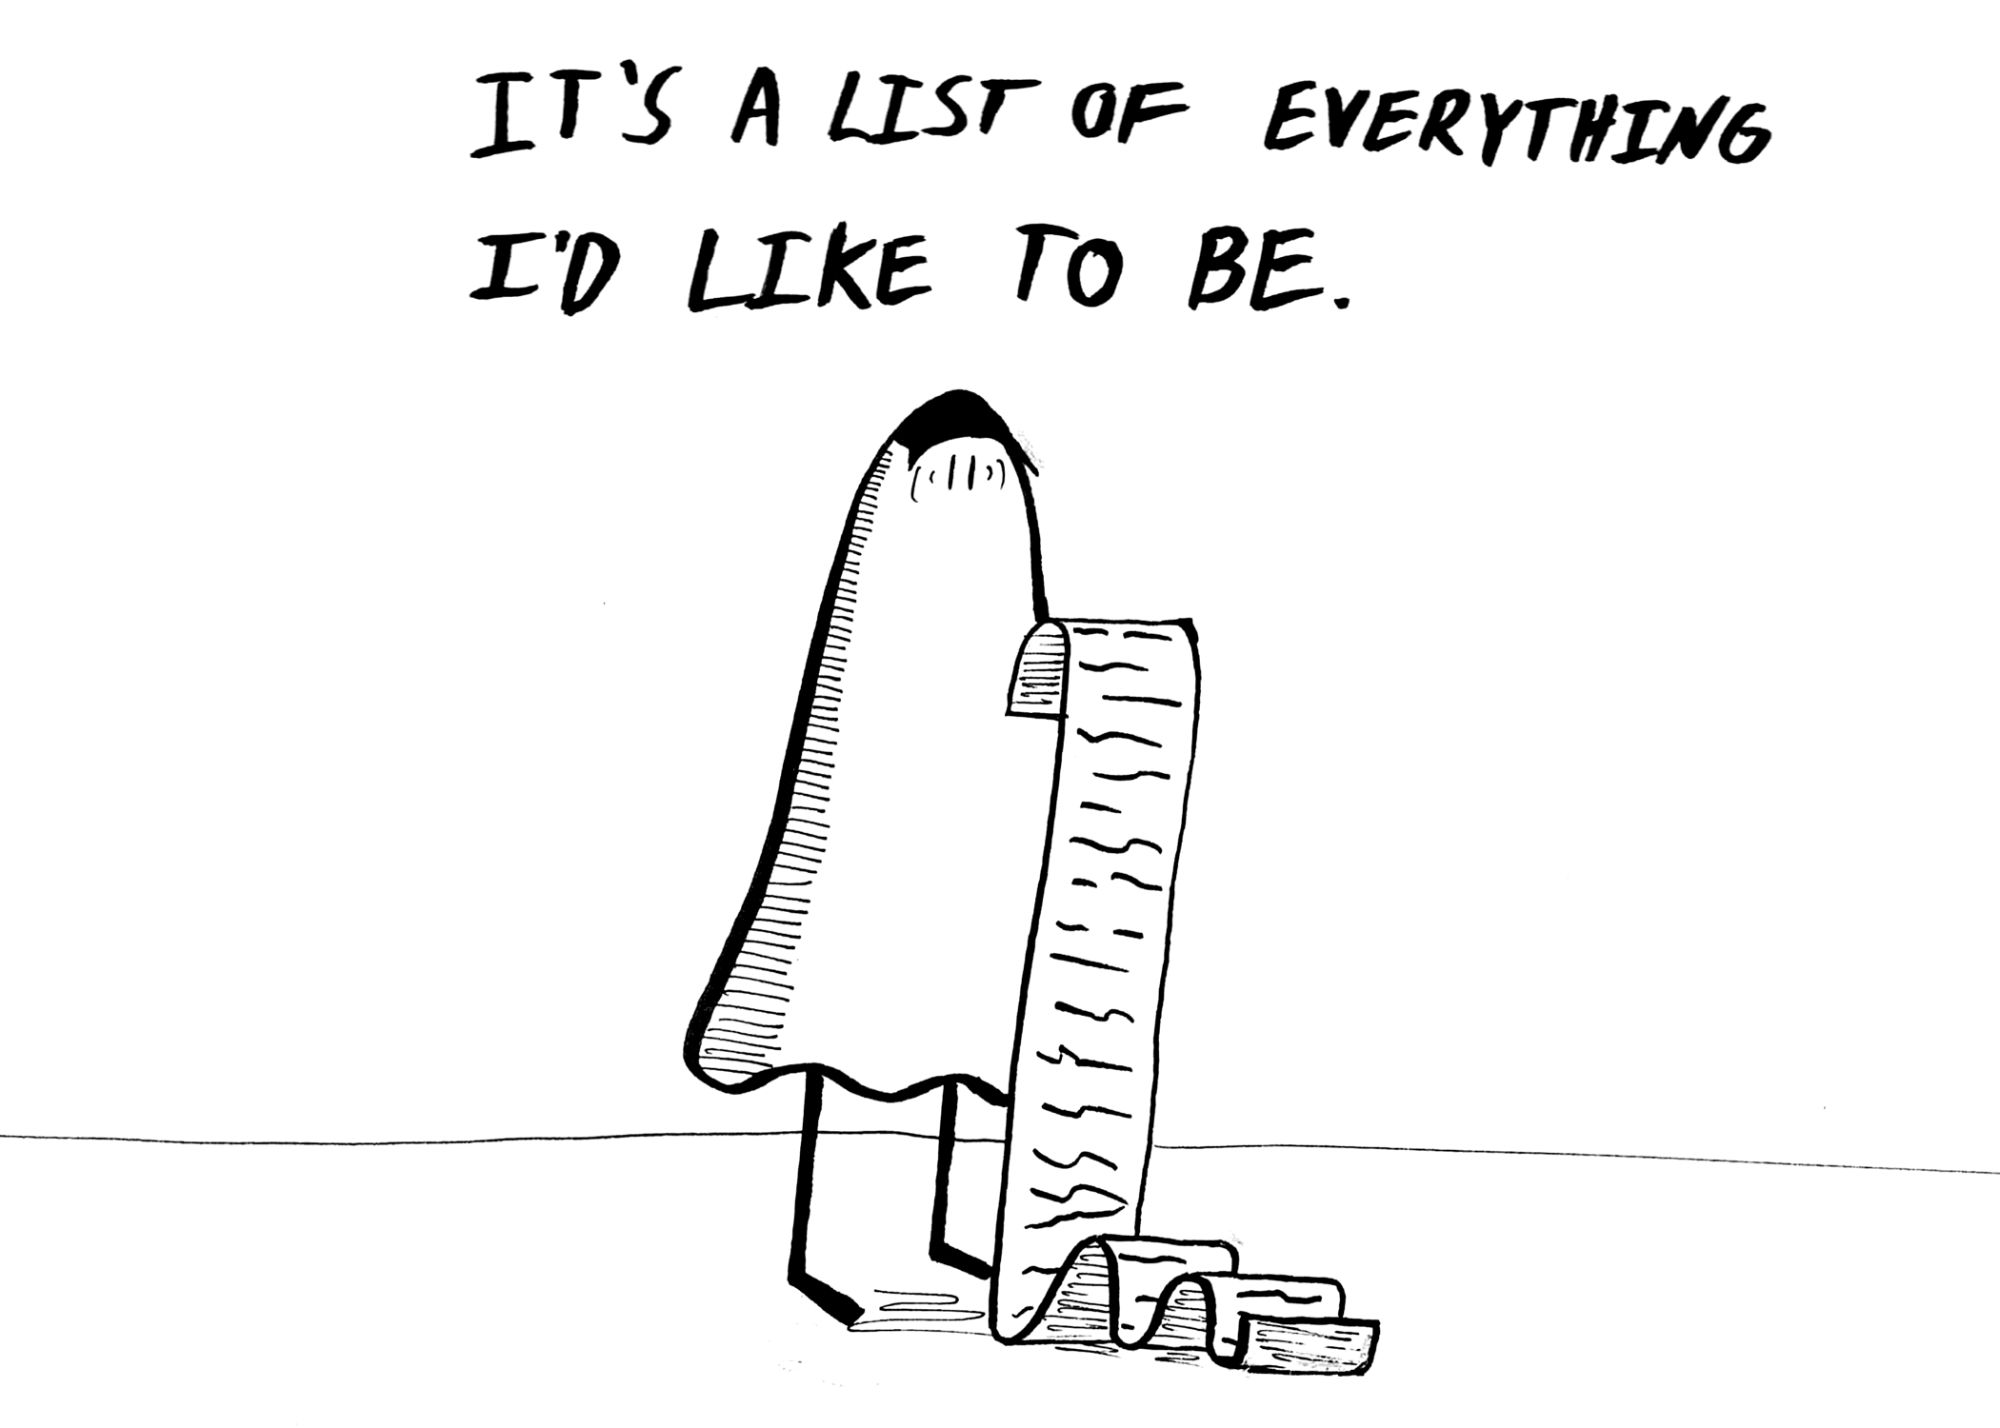 IT'S A LIST OF EVERYTHING
I'D LIKE TO BE.